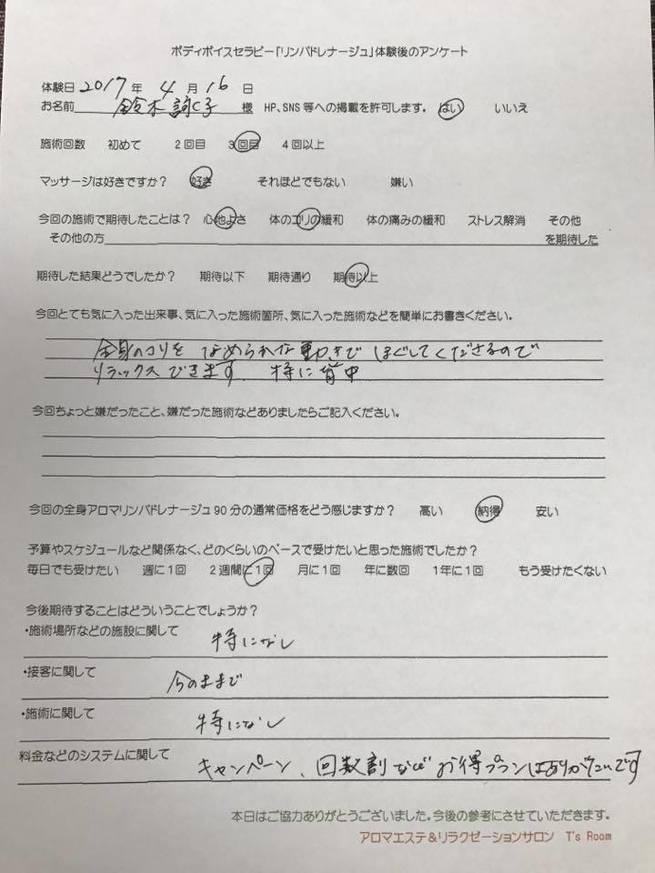 ボディボイスセラピー「リンパドレナージュ」体験後のアンケート
体験日 2017 年 4 月 16 日
お名前 鈴木 子 様 HP、SNS 等への掲載を許可します。 はい いいえ
施術回数 初めて 2回目 3回目 4回以上
マッサージは好きですか? 好き それほどでもない 嫌い
今回の施術で期待したことは? 心地よさ 体のコリの緩和 体の痛みの緩和 ストレス解消 その他
その他の方 を期待した
期待した結果どうでしたか? 期待以下 期待通り 期待以上
今回とても気に入った出来事、気に入った施術箇所、気に入った施術などを簡単にお書きください。
全身のコリを なめられな動きで ほぐしてくださるので
リラックスできます。 特に背中
今回ちょっと嫌だったこと、嫌だった施術などありましたらご記入ください。
今回の全身アロマリンパドレナージュ90分の通常価格をどう感じますか? 高い 納得 安い
予算やスケジュールなど関係なく、どのくらいのペースで受けたいと思った施術でしたか?
毎日でも受けたい 週に1回 2週間に1回 月に1回 年に数回 1年に1回 もう受けたくない
今後期待することはどういうことでしょうか?
・施術場所などの施設に関して 特になし
・接客に関して 今のままで
・施術に関して 特になし
料金などのシステムに関して キャンペーン、回数割など お得プランはありがたいです
本日はご協力ありがとうございました。今後の参考にさせていただきます。
アロマエステ&リラクゼーションサロン T's Room